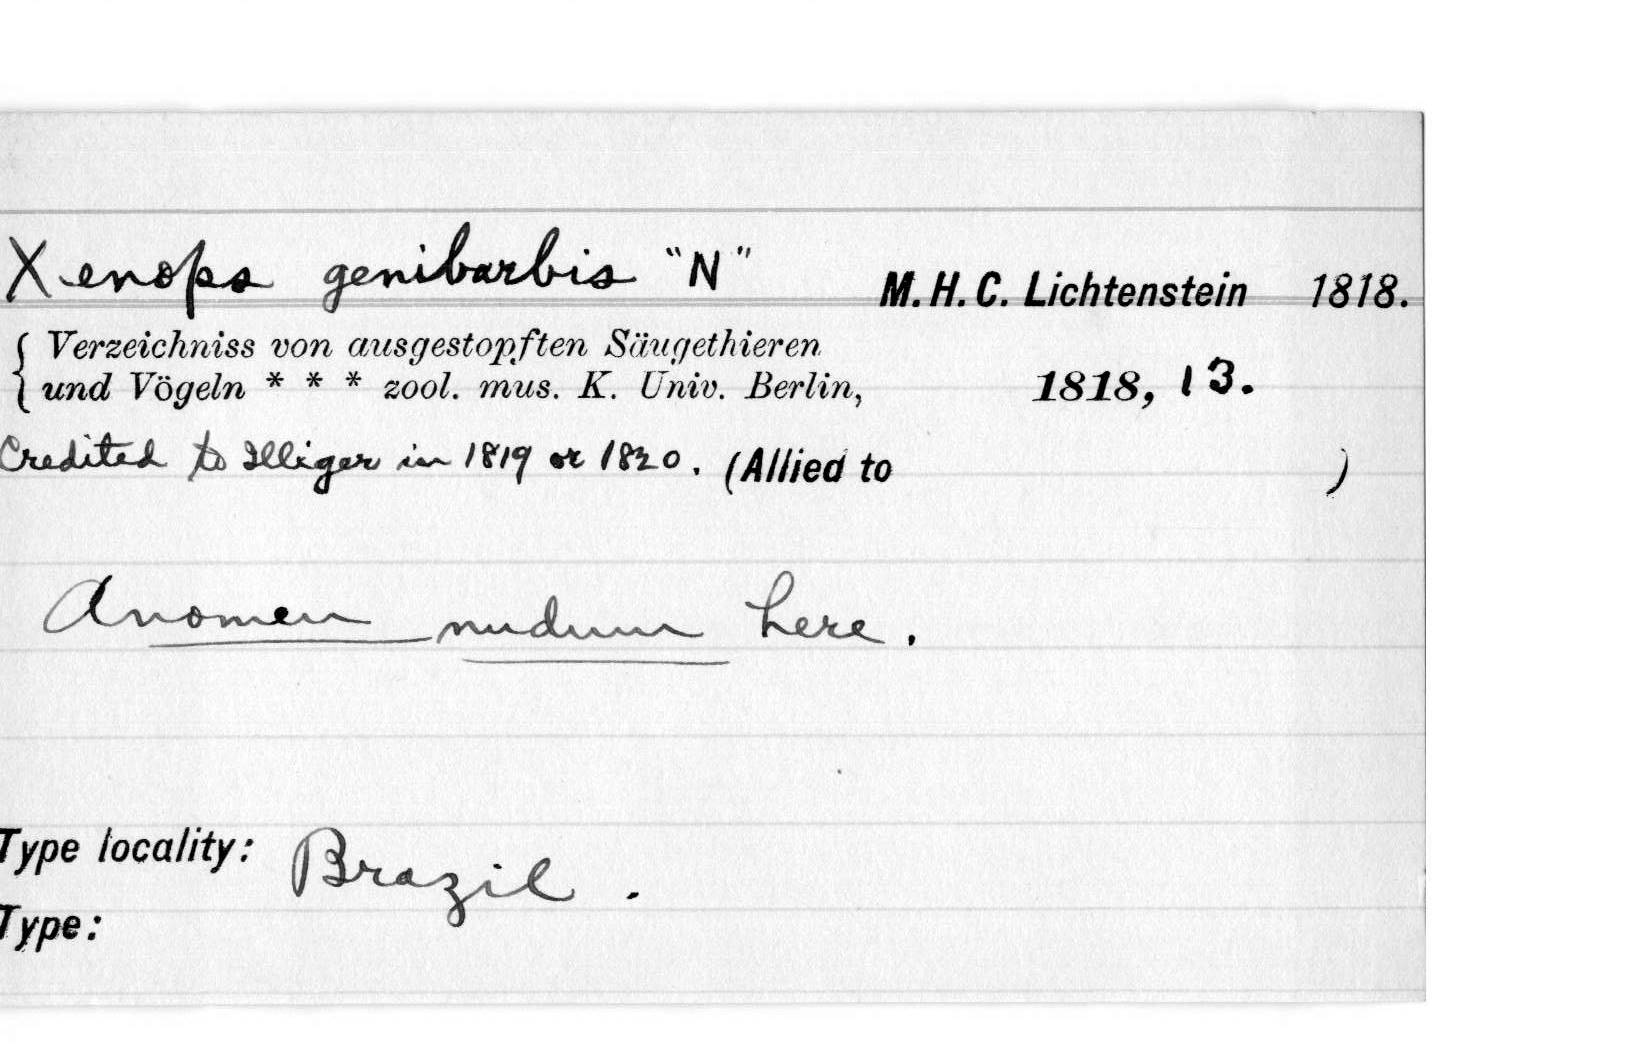 Xenops genibarbis "N" M. H. C. Lichtenstein 1818.
{ Verzeichniss von ausgestopften Säugethieren
und Vögeln * * * zool. mus. K. Univ. Berlin, 1818, 13.
Credited to Illiger in 1819 or 1820. (Allied to )
A nomen nudum here.
Type locality: Brazil.
Type: